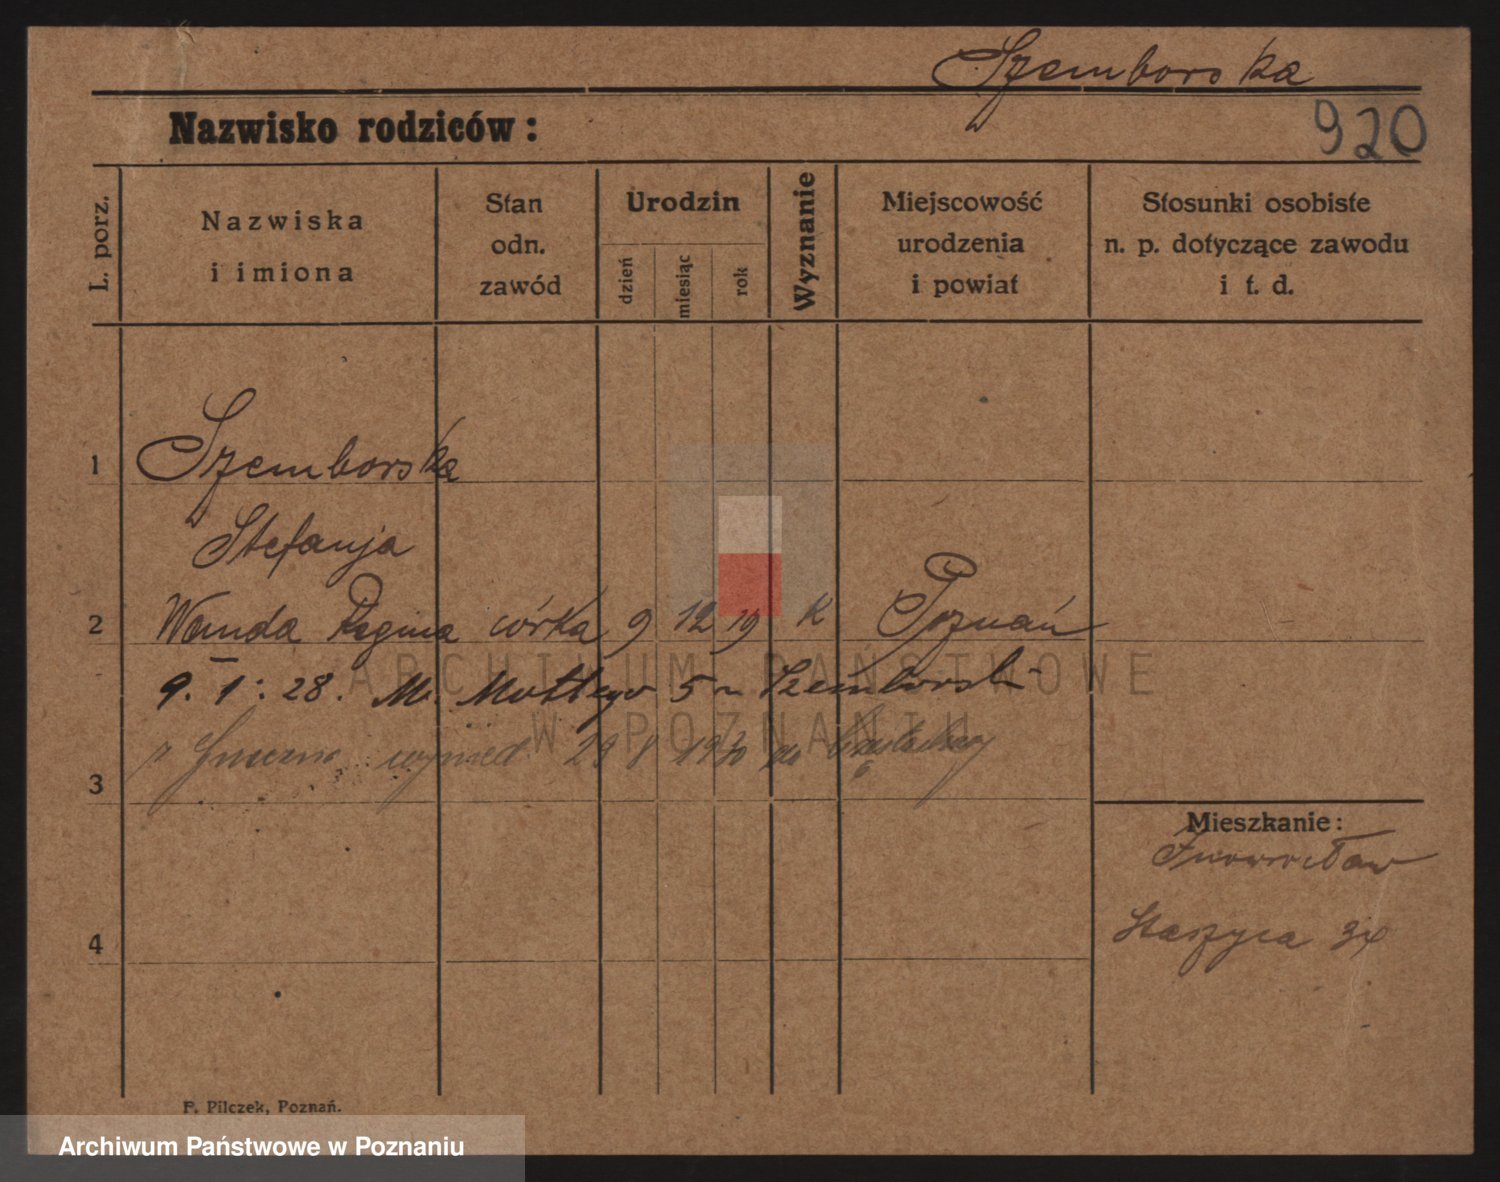 Szemborska
920
Nazwisko rodziców:
L. porz.
Nazwiska
i imiona
Stan
odn.
zawód
Urodzin
dzień
miesiąc
rok
Wyznanie
Miejscowość
urodzenia
i powiat
Stosunki osobiste
n. p. dotyczące zawodu
i t. d.
1 Szemborska
Stefanja
2 Wanda Regina córka 9 12 19 K Poznań
9. 1. 28. M. Mottego 5 Szemborski
29 8 1930 do
3
Mieszkanie:
Inowrocław
4 Staszyca 34
ARCHIWUM PAŃSTWOWE
W POZNANIU
P. Pilczek, Poznań.
Archiwum Państwowe w Poznaniu